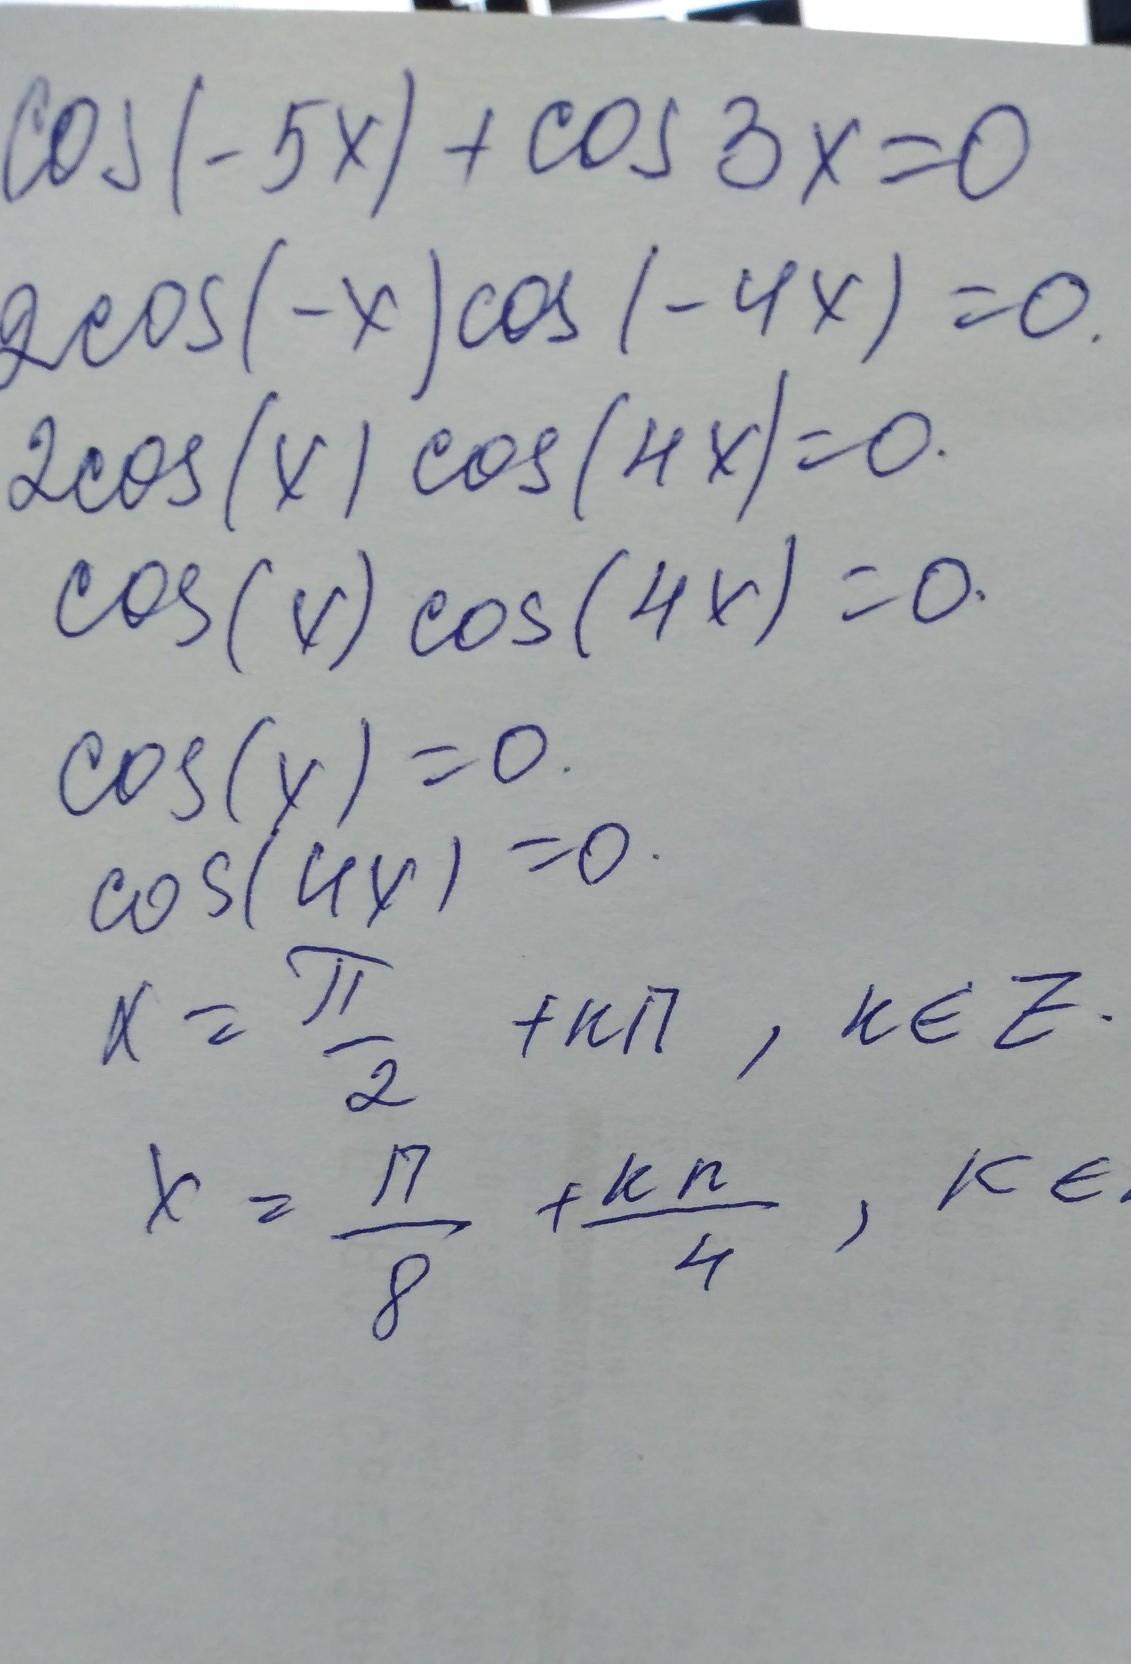 cos(-5x)+cos3x=0
2cos(-x)cos(-4x)=0.
2cos(x) cos(4x)=0.
cos(x) cos(4x)=0.
cos(x)=0.
cos(4x)=0.
x = π/2 +kπ, k∈Z.
x = π/8 + kπ/4, k∈